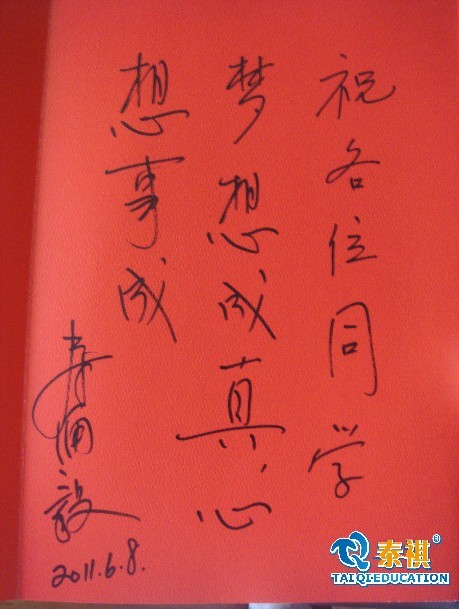 祝各位同学
梦想成真心
想事成
2011.6.8.
泰祺®
TAIQI EDUCATION